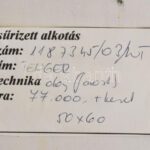 sűrizett alkotás
zám: 118 7345/03/
ím: TENGER
echnika olaj (farost)
ra: 77.000.- + keret
50x60